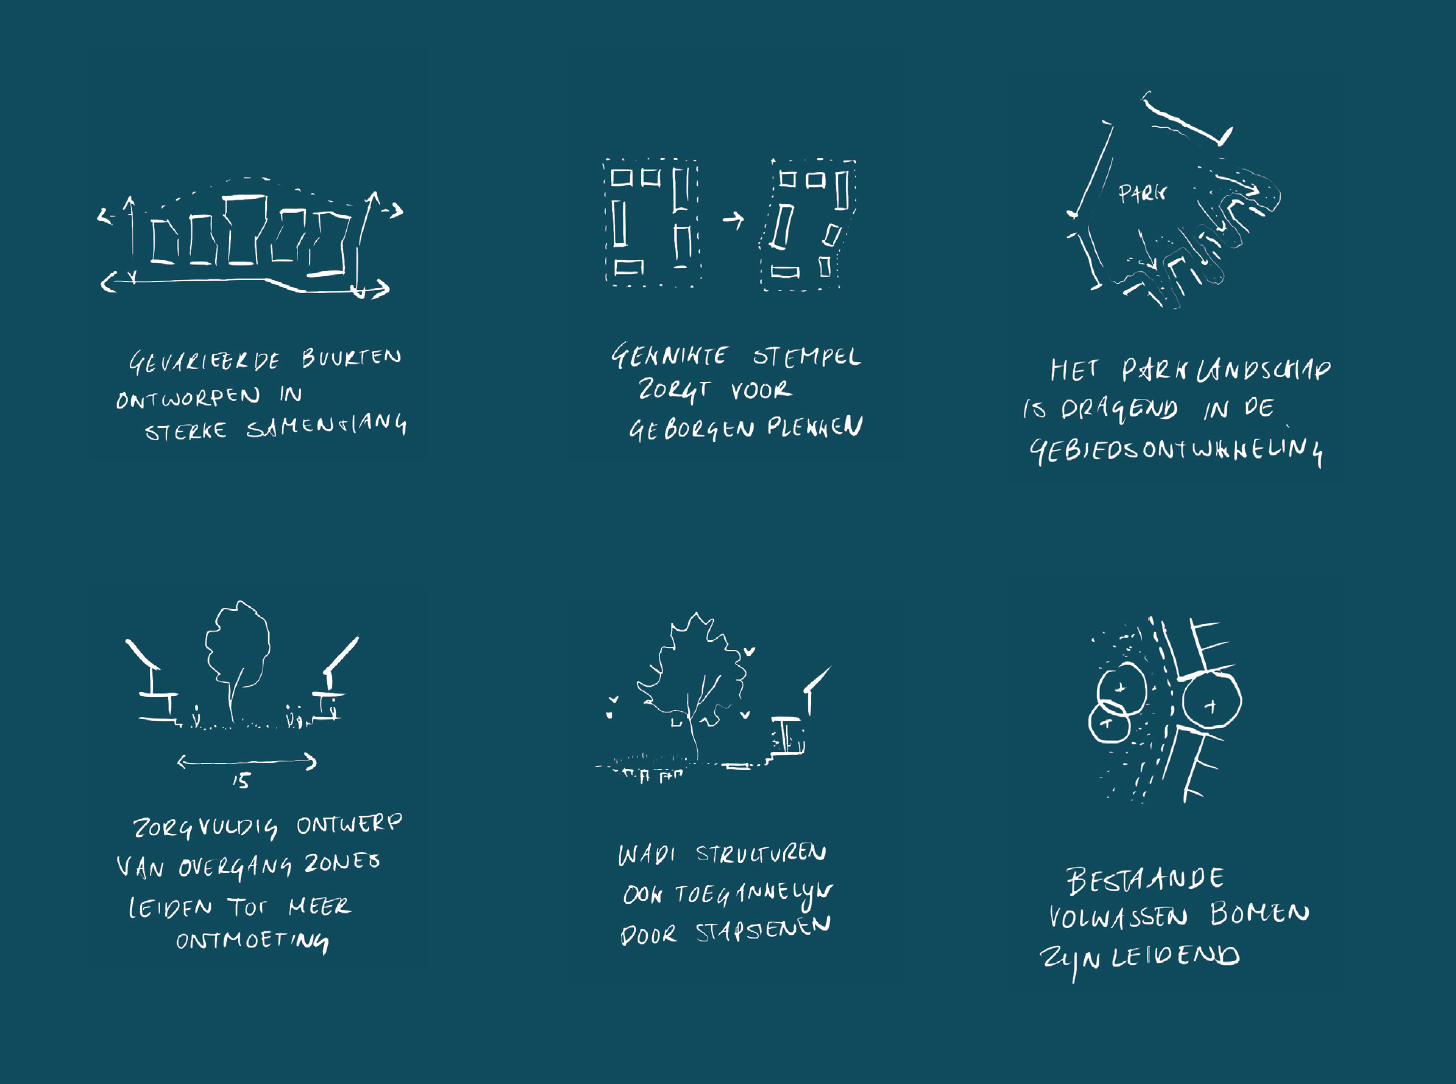 GEVARIEERDE BUURTEN
ONTWORPEN IN
STERKE SAMENHANG
GEKNIKTE STEMPEL
ZORGT VOOR
GEBORGEN PLEKKEN
PARK
HET PARKLANDSCHAP
IS DRAGEND IN DE
GEBIEDSONTWIKKELING
15
ZORGVULDIG ONTWERP
VAN OVERGANG ZONES
LEIDEN TOT MEER
ONTMOETING
WADI STRUCTUREN
OOK TOEGANKELIJK
DOOR STAPSTENEN
BESTAANDE
VOLWASSEN BOMEN
ZIJN LEIDEND